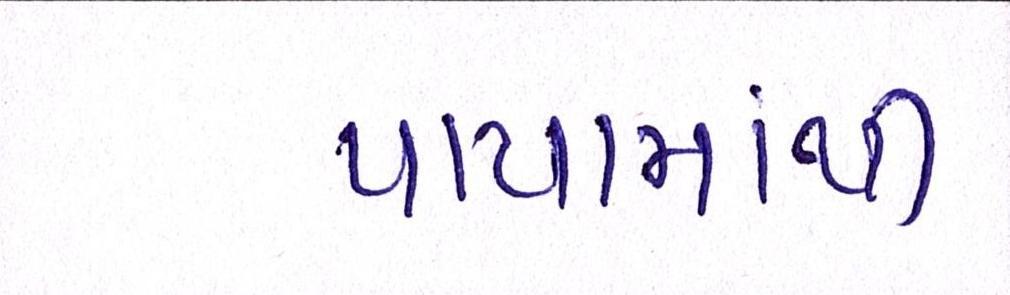 પાયામાંથી